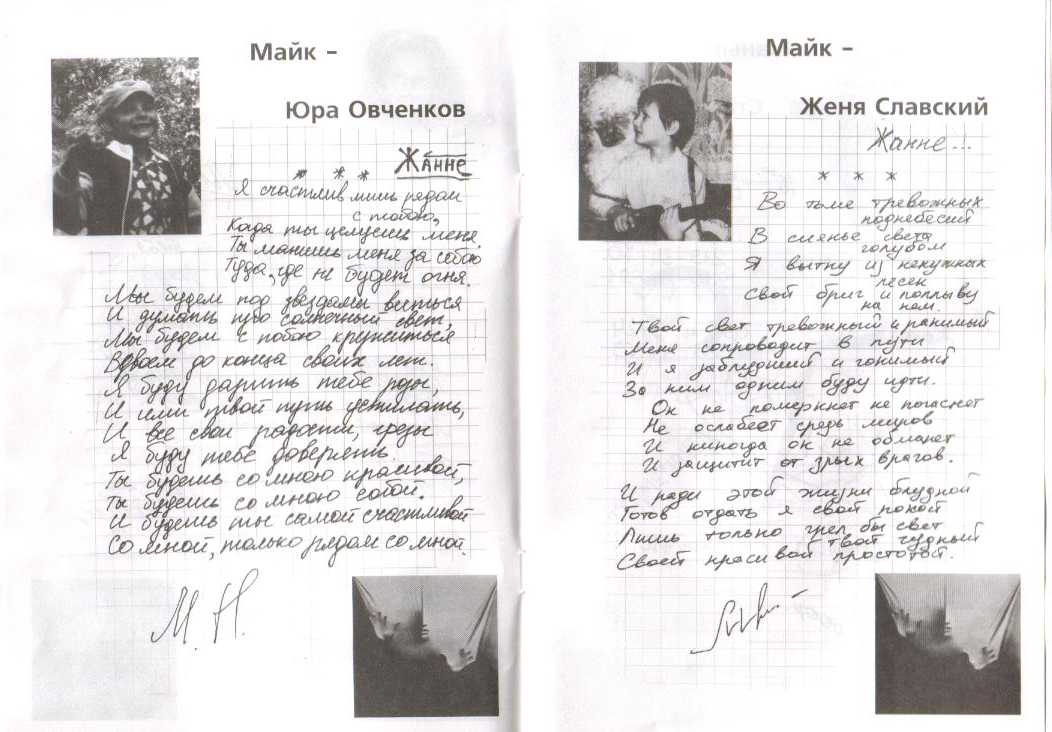 Майк –
Юра Овченков
Жанне
* * *
Я счастлив лишь рядом
с тобою,
Когда ты целуешь меня.
Ты манишь меня за собою
Туда, где не будет огня.
Мы будем под звездами виться
И думать про солнечный свет,
Мы будем с тобою кружиться
Вдвоем до конца своих лет.
Я буду дарить тебе розы,
И ими твой путь устилать,
И все свои радости, грезы
Я буду тебе доверять.
Ты будешь со мною красивой,
Ты будешь со мною собой.
И будешь ты самой счастливой
Со мной, только рядом со мной.
М. Н.
Майк –
Женя Славский
Жанне...
* * *
Во тьме тревожных
поднебесий
В сиянье света
голубом
Я вытку из ненужных
песен
Свой бриг и поплыву
на нем.
Твой свет тревожный и ранимый
Меня сопроводит в пути
И я заблудший и гонимый
За ним одним буду идти.
Он не померкнет не погаснет
Не ослабеет средь миров
И никогда он не обманет
И защитит от злых врагов.
И ради этой жизни блудной
Готов отдать я свой покой
Лишь только грел бы свет
твой чудный
Своей красивой простотой.